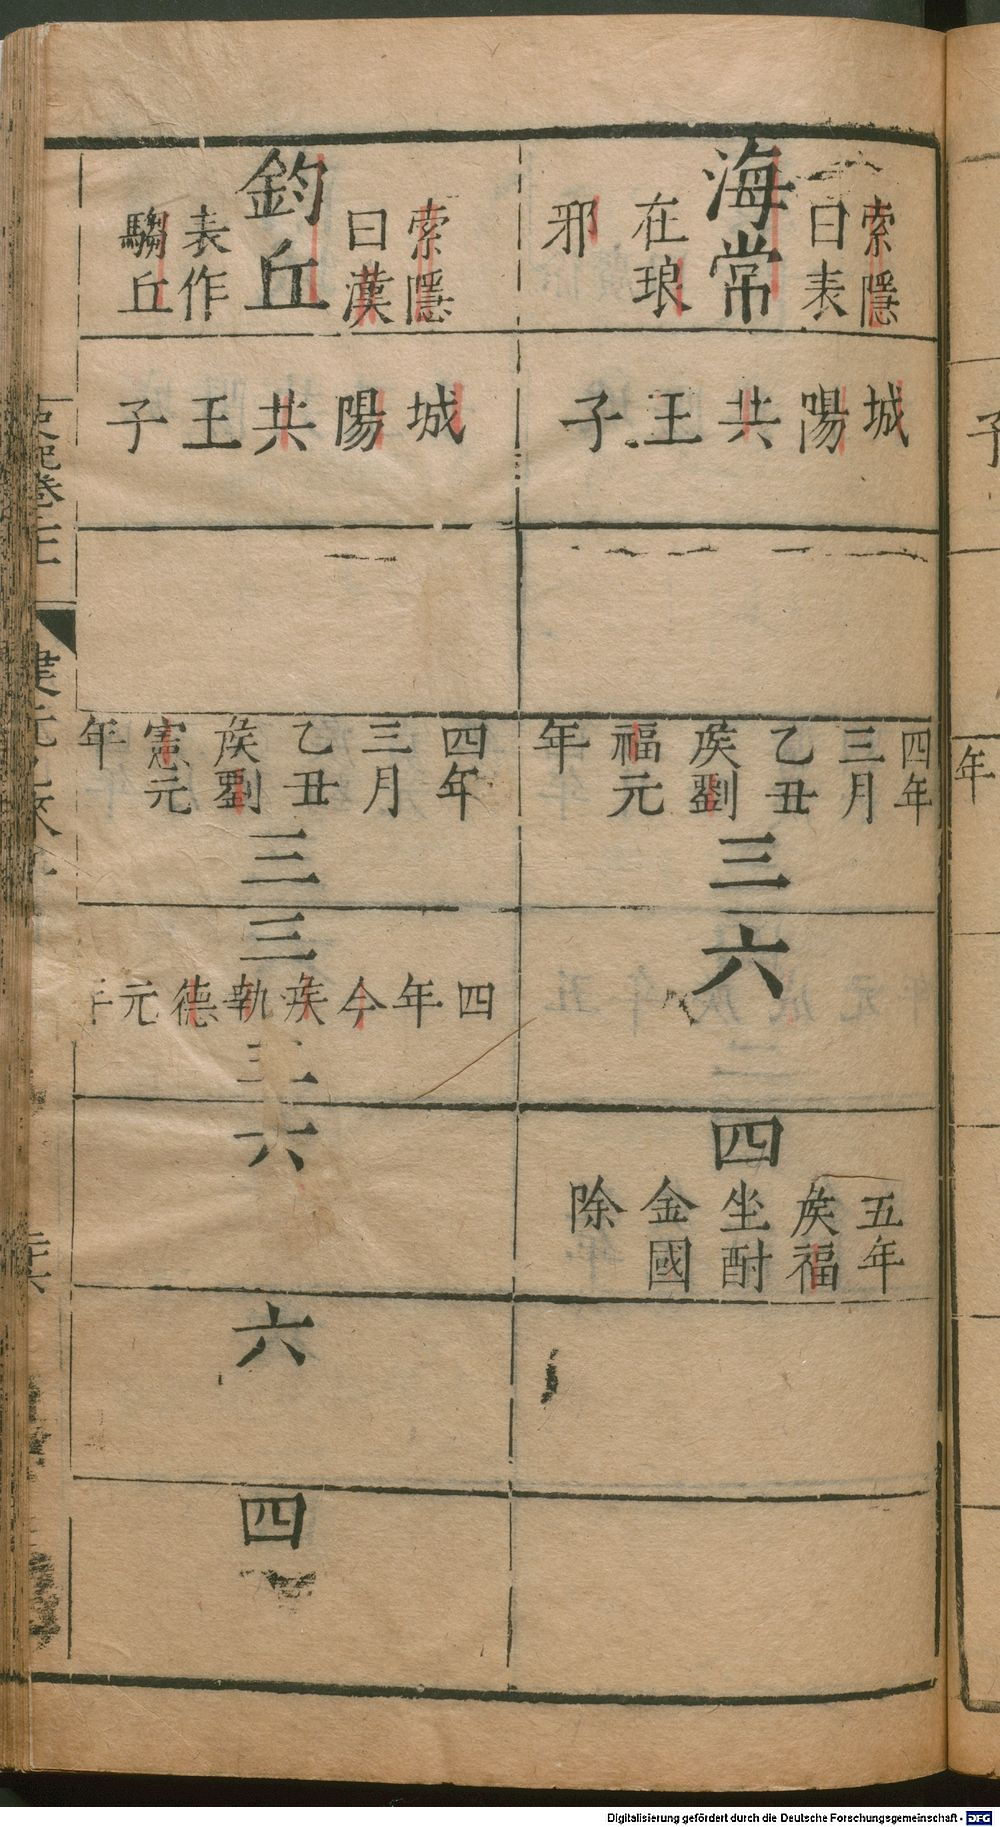 海常
索隱
曰表
在琅
邪
城陽共王子
四年
三月
乙丑
侯劉
福元
年
三
六
四
五年
侯福
坐酎
金國
除
鈞丘
索隱
曰漢
表作
騶丘
城陽共王子
四年
三月
乙丑
侯劉
憲元
年
三
三
四年今侯執德元年
三
六
六
四
史記卷二十一
Digitalisierung gefördert durch die Deutsche Forschungsgemeinschaft - DFG